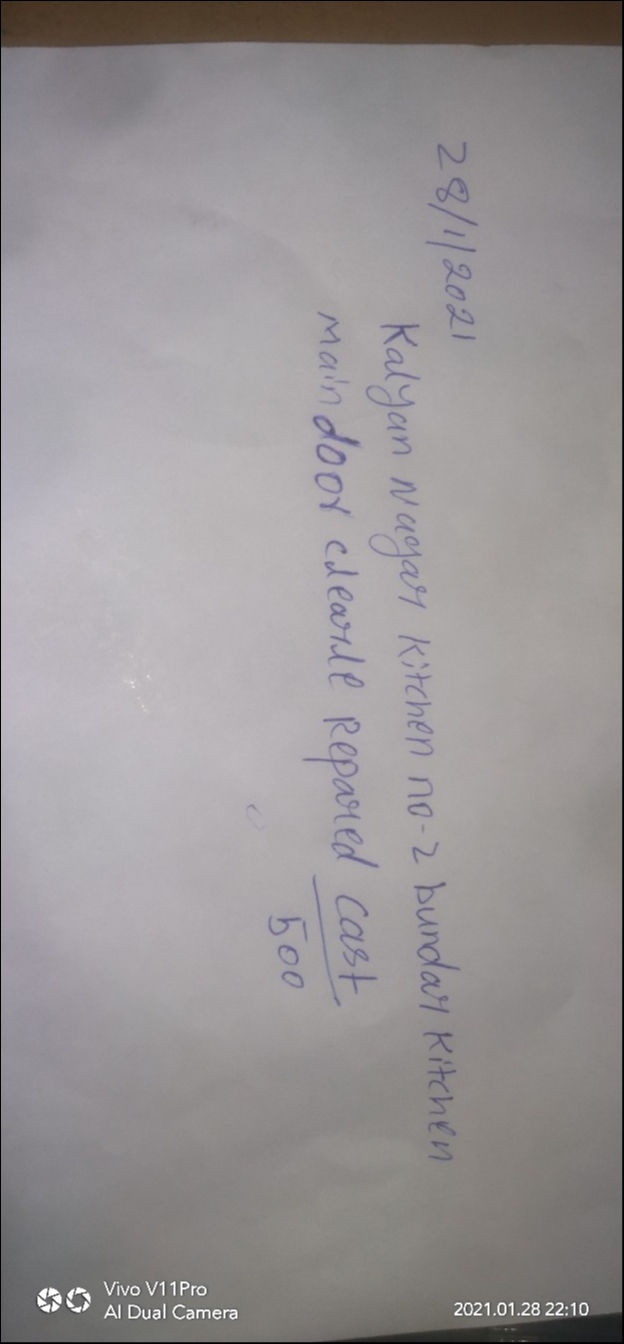 28/1/2021
Kalyan Nagar Kitchen no-2 bundar Kitchen
main door clearle Repared cast
500
Vivo V11Pro
AI Dual Camera
2021.01.28 22:10